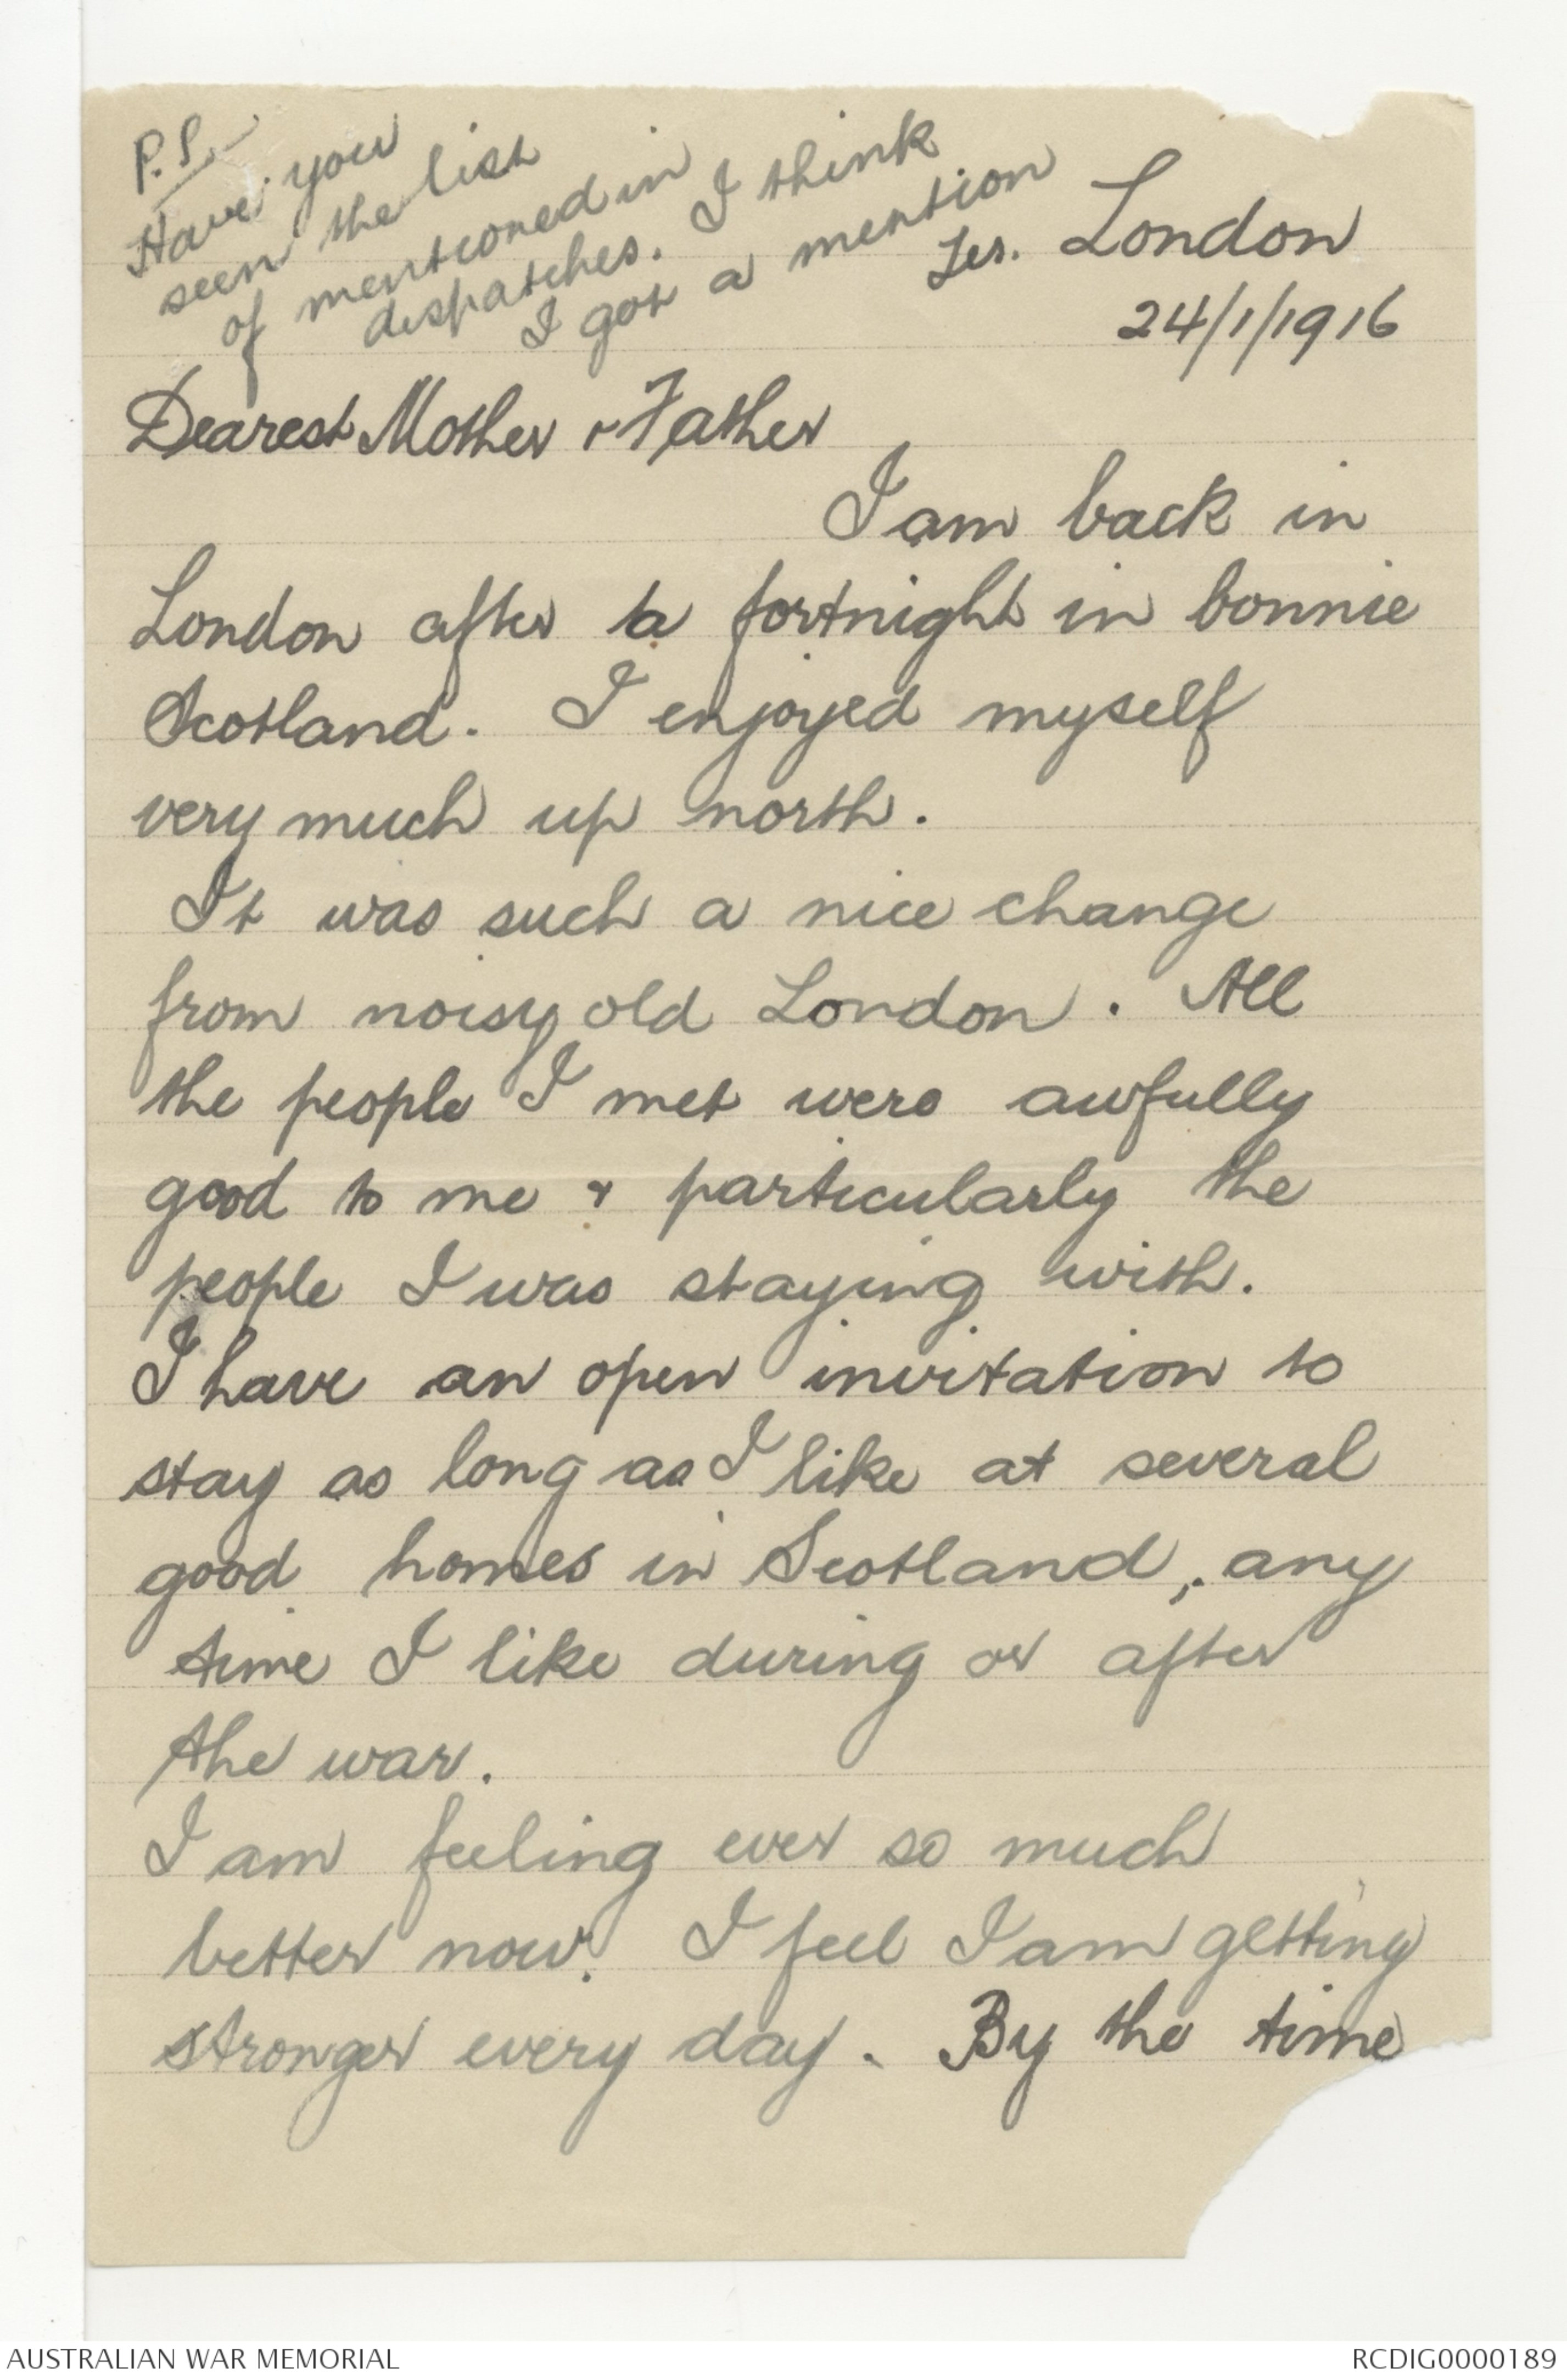 P.S.
Have you
seen the list
of mentioned in
dispatches. I think
I got a mention
London
24/1/1916
Dearest Mother & Father
I am back in
London after a fortnight in bonnie
Scotland. I enjoyed myself
very much up north.
It was such a nice change
from noisy old London. All
the people I met were awfully
good to me & particularly the
people I was staying with.
I have an open invitation to
stay as long as I like at several
good homes in Scotland, any
time I like during or after
the war.
I am feeling ever so much
better now. I feel I am getting
stronger every day. By the time
AUSTRALIAN WAR MEMORIAL
RCDIG0000189